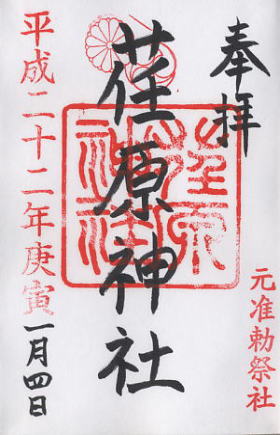 奉拝
元准勅祭社
荏原神社
荏原神社
平成二十二年庚寅一月四日